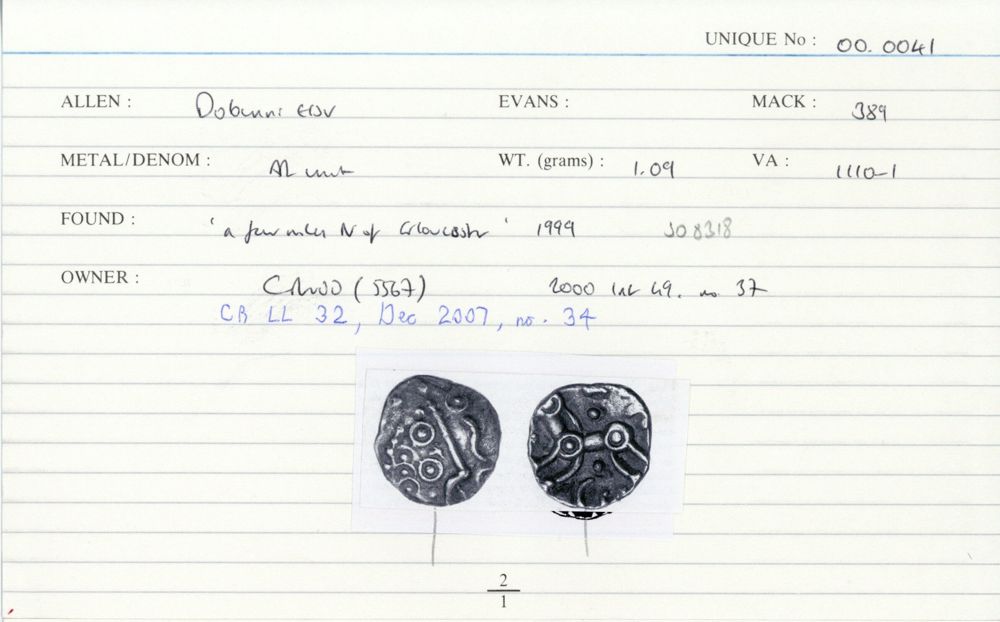 UNIQUE No : 00. 0041
ALLEN : Dobunni EVANS : MACK : 389
METAL/DENOM : AR unit WT. (grams) : 1.09 VA : 1110-1
FOUND : 'a few miles N of Gloucester' 1999 SO 8318
OWNER : (5567) 2000 49. no. 37
CR LL 32, Dec 2007, no. 34
2
1